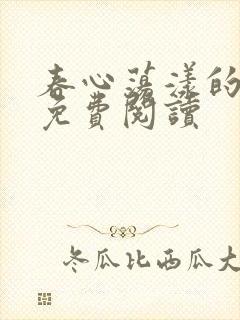 春心蕩漾的
免費閱讀
冬瓜比西瓜大